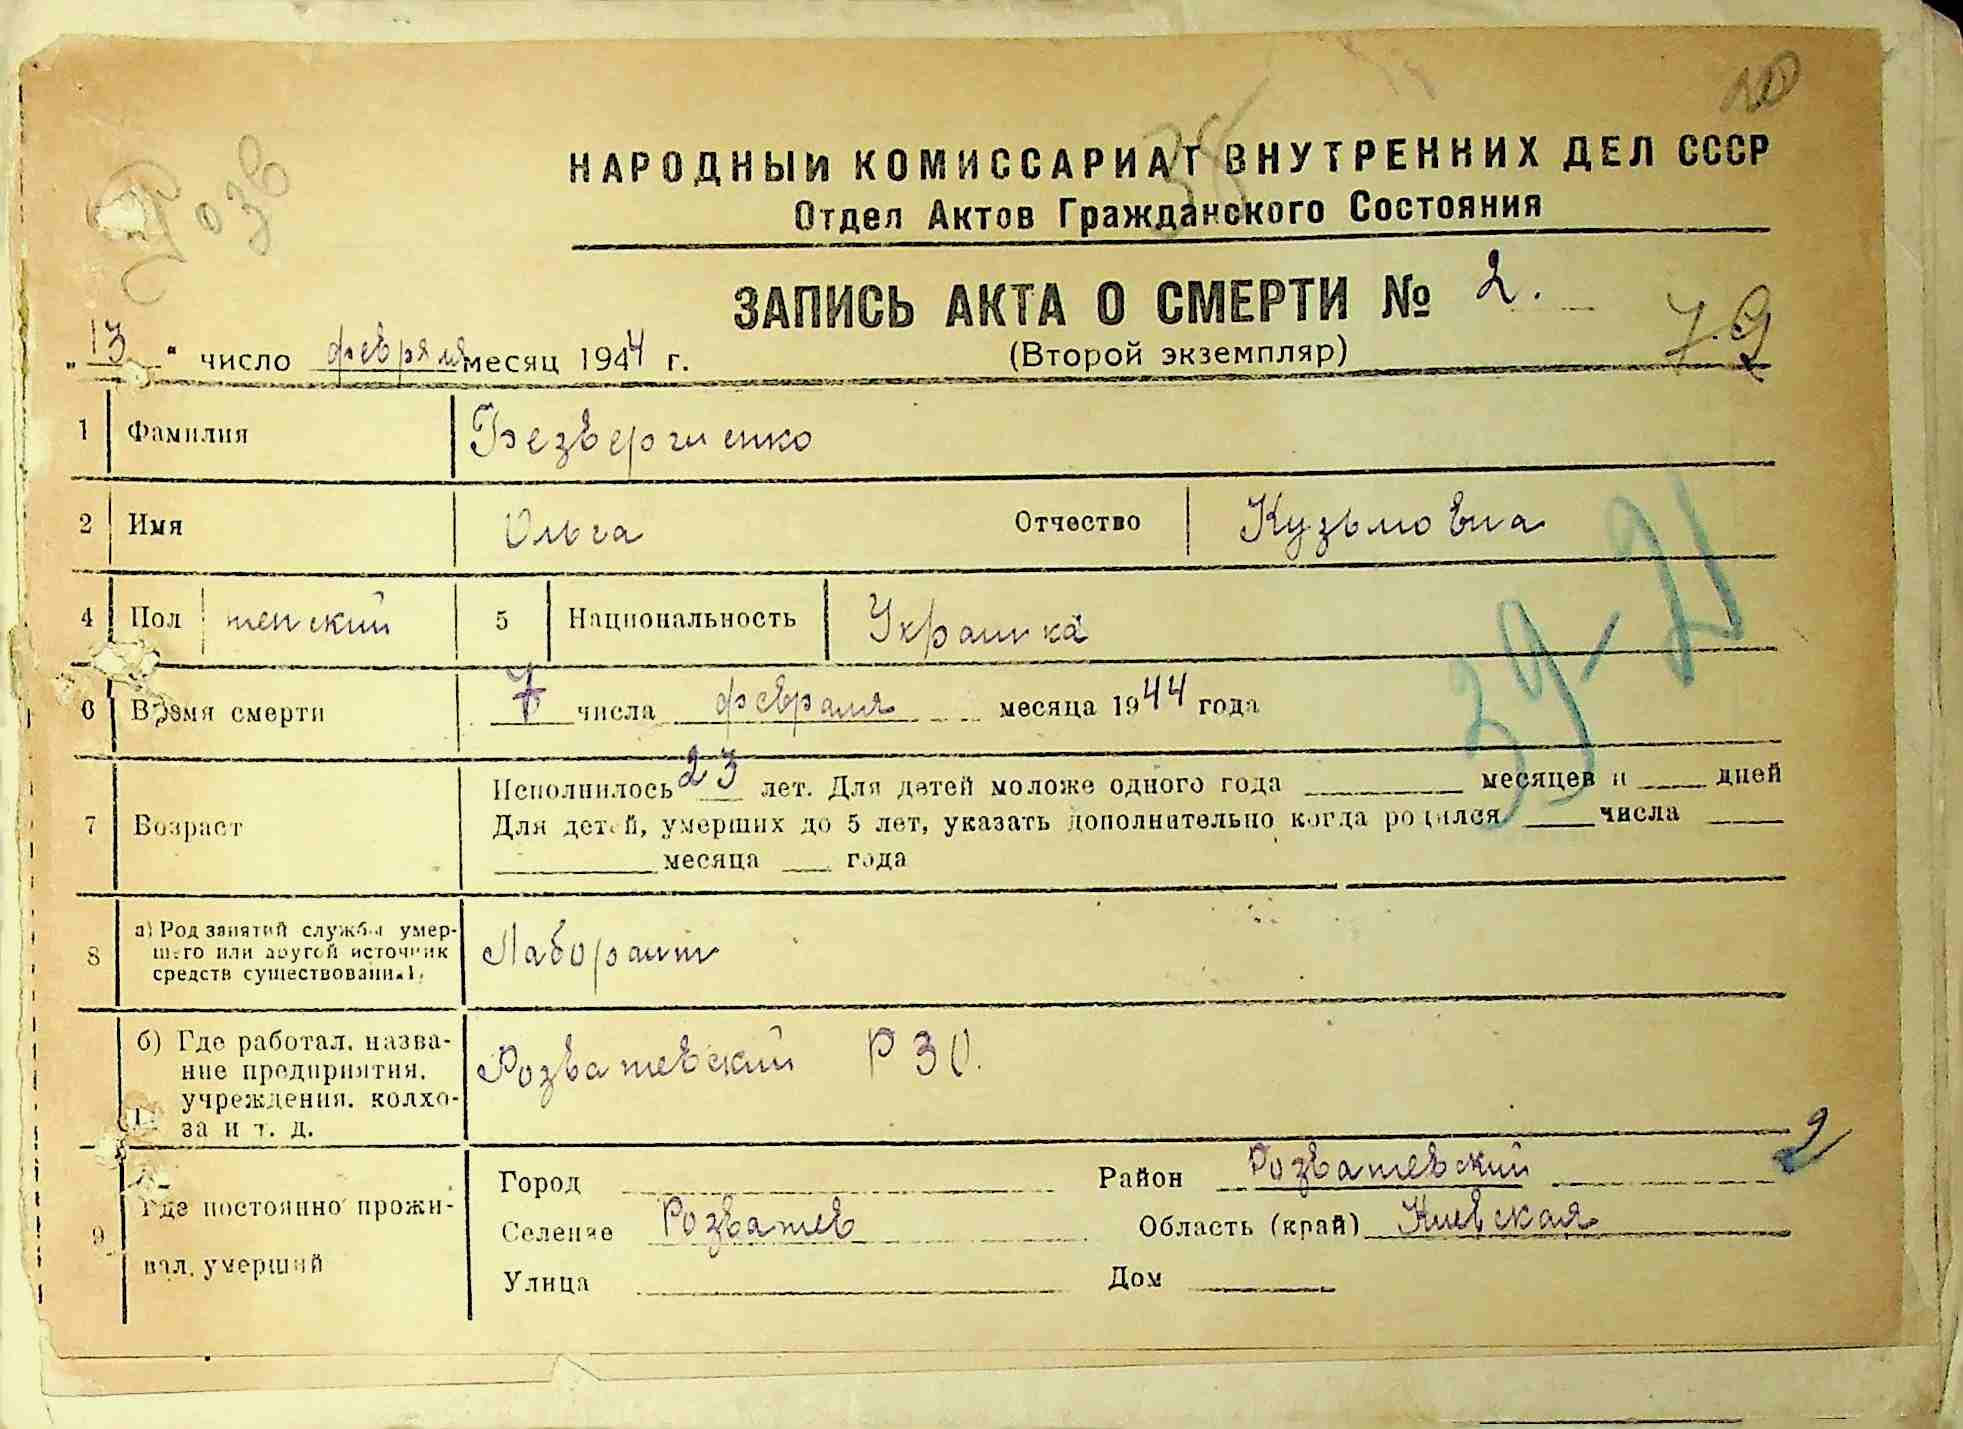 20
Розв
38
НАРОДНЫЙ КОМИССАРИАТ ВНУТРЕННИХ ДЕЛ СССР
Отдел Актов Гражданского Состояния
ЗАПИСЬ АКТА О СМЕРТИ № 2.
79
"13" число февраля месяц 1944 г.
(Второй экземпляр)
1 Фамилия Безверхненко
2 Имя Ольга Отчество Кузьмовна
4 Пол женский 5 Национальность Украинка
39-21
6 Время смерти 7 числа февраля месяца 1944 года
7 Возраст
Исполнилось 23 лет. Для детей моложе одного года месяцев и дней
Для детей, умерших до 5 лет, указать дополнительно когда родился числа
месяца года
8 а) Род занятий службы умер-
шего или другой источник
средств существования.
Лаборант
б) Где работал, назва-
ние предприятия,
учреждения, колхо-
за и т. д.
Розважевский РЗО.
2
9 Где постоянно прожи-
вал, умерший
Город Район Розважевский
Селение Розважев Область (край) Киевская
Улица Дом